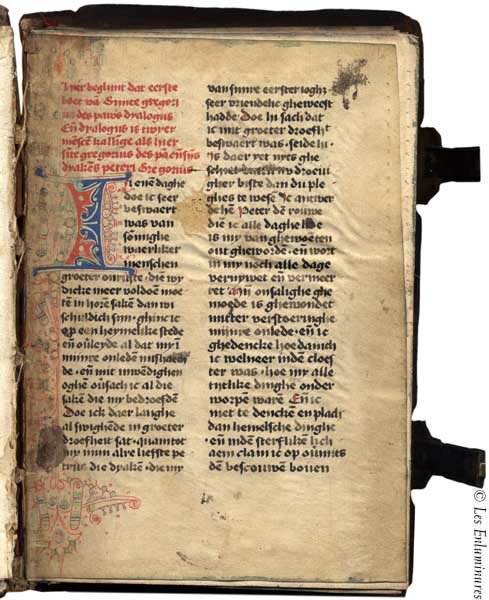 Hier beghint dat eerste
boec vā Sinte gregori
us des paws dyalogus
Eñ dyalogus is twyer
mēscē kallige als hier
sīte gregorius des pawes eñ sijs
dyakēs peters Gregorius
enē daghe
doe ic seer
beswaert
was van
sōmighe
waerliker
menschen
groeter onruste · die wy
dicke meer voldoē moe
tē in horē sakē dan wi
schuldich sijn · ghinc ic
op een heymelike stede
eñ ouleyde al dat my ī
mijnre onledē mishaech
de · eñ mit inwēdighen
oghē ōnsach ic al die
sakē die my bedroefdē
Doe ick daer langhe
al swighēde in groeter
droefheit sat · quam tot
my mijn alre liefste pe
trus die dyakē · die my
van sijnre eerster ioght
seer vriendelic gheweest
hadde Doe hi sach dat
ic mit groeter droefhʒ
beswaert was · seide hi ·
Is daer yet nyes ghe
schiet dattu droeui
gher biste dan du ple
ghes te wesē Ic antwer
de hē Peter dē rouwe
diē ic alle daghe lide
is my van ghewoēten
out ghewordē · eñ wort
in my noch alle dage
vernywet eñ vermeer
ret Mijn onsalighe ghe
moede is ghewondet
mitter verstoeringhe
mijnre onlede · eñ ic
ghedencke hoedanich
ic welneer indē cloes
ter was · hoe my alle
tijtlike dinghe onder
worpē warē Eñ ic
niet te denckē en plach
dan hemelsche dinghe
· eñ mids sterflikē lich
aem clam ic op ouermits
dē bescouwen bouen
© Les Enluminures